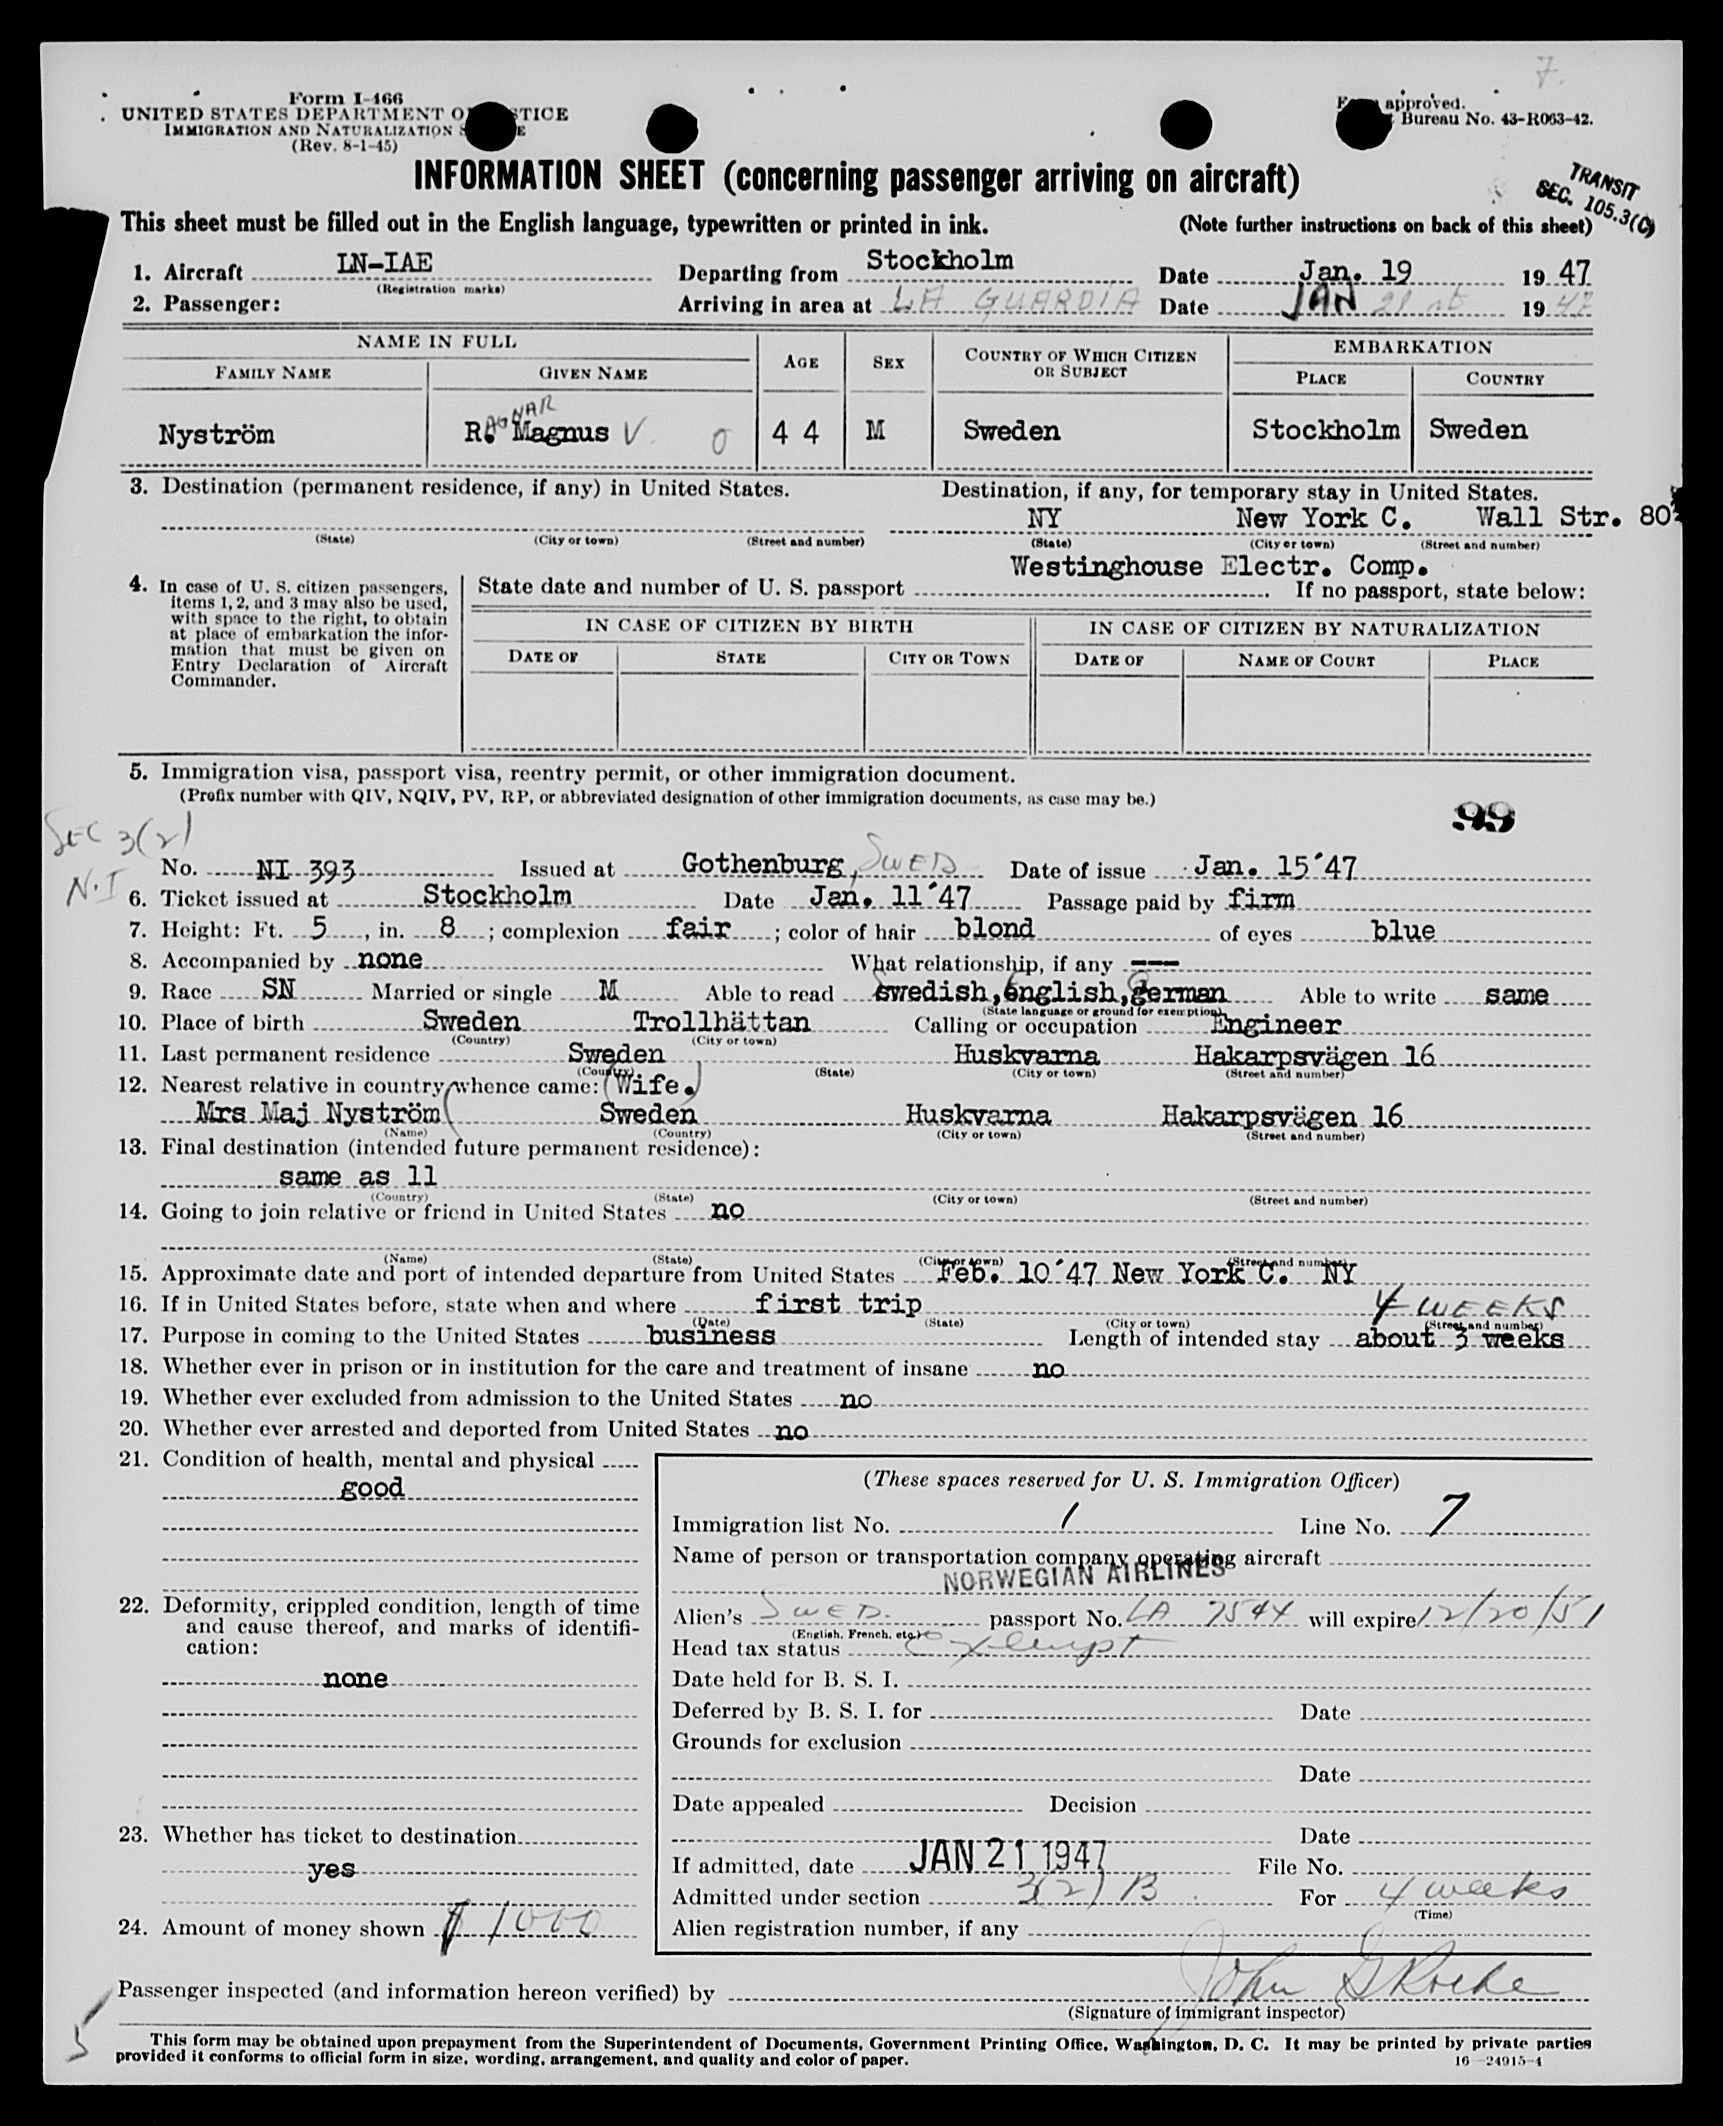 7.
Form I-466
UNITED STATES DEPARTMENT OF JUSTICE
IMMIGRATION AND NATURALIZATION SERVICE
(Rev. 8-1-45)
approved.
Bureau No. 43-R063-42.
INFORMATION SHEET (concerning passenger arriving on aircraft)
TRANSIT
SEC. 105.3(C)
This sheet must be filled out in the English language, typewritten or printed in ink. (Note further instructions on back of this sheet)
1. Aircraft LN-IAE Departing from Stockholm Date Jan. 19 19 47
(Registration marks)
2. Passenger: Arriving in area at LA GUARDIA Date JAN 21 st 19 47
NAME IN FULL
FAMILY NAME GIVEN NAME AGE SEX COUNTRY OF WHICH CITIZEN OR SUBJECT EMBARKATION
PLACE COUNTRY
AGNAR
Nyström R. Magnus V 0 4 4 M Sweden Stockholm Sweden
3. Destination (permanent residence, if any) in United States. Destination, if any, for temporary stay in United States.
NY New York C. Wall Str. 80
(State) (City or town) (Street and number) (State) (City or town) (Street and number)
Westinghouse Electr. Comp.
4. In case of U. S. citizen passengers, items 1, 2, and 3 may also be used, with space to the right, to obtain at place of embarkation the information that must be given on Entry Declaration of Aircraft Commander.
State date and number of U. S. passport If no passport, state below:
IN CASE OF CITIZEN BY BIRTH IN CASE OF CITIZEN BY NATURALIZATION
DATE OF STATE CITY OR TOWN DATE OF NAME OF COURT PLACE
5. Immigration visa, passport visa, reentry permit, or other immigration document.
(Prefix number with QIV, NQIV, PV, RP, or abbreviated designation of other immigration documents, as case may be.)
99
SEC 3(2)
N.I
No. NI 393 Issued at Gothenburg, SWED Date of issue Jan. 15´47
6. Ticket issued at Stockholm Date Jan. 11´47 Passage paid by firm
7. Height: Ft. 5, in. 8; complexion fair; color of hair blond of eyes blue
8. Accompanied by none What relationship, if any ---
9. Race SN Married or single M Able to read swedish, english, german Able to write same
(State language or ground for exemption)
10. Place of birth Sweden Trollhättan Calling or occupation Engineer
(Country) (City or town)
11. Last permanent residence Sweden Huskvarna Hakarpsvägen 16
(Country) (State) (City or town) (Street and number)
12. Nearest relative in country whence came: (Wife.)
Mrs Maj Nyström Sweden Huskvarna Hakarpsvägen 16
(Name) (Country) (City or town) (Street and number)
13. Final destination (intended future permanent residence):
same as 11
(Country) (State) (City or town) (Street and number)
14. Going to join relative or friend in United States no
(Name) (State) (City or town) (Street and number)
15. Approximate date and port of intended departure from United States Feb. 10´47 New York C. NY
16. If in United States before, state when and where first trip 4 WEEKS
(Date) (State) (City or town) (Street and number)
17. Purpose in coming to the United States business Length of intended stay about 3 weeks
18. Whether ever in prison or in institution for the care and treatment of insane no
19. Whether ever excluded from admission to the United States no
20. Whether ever arrested and deported from United States no
21. Condition of health, mental and physical
good
22. Deformity, crippled condition, length of time and cause thereof, and marks of identification:
none
23. Whether has ticket to destination
yes
24. Amount of money shown $ 1000
(These spaces reserved for U. S. Immigration Officer)
Immigration list No. 1 Line No. 7
Name of person or transportation company operating aircraft
NORWEGIAN AIRLINES
Alien's SWED. passport No. LA 7544 will expire 12/20/51
(English, French, etc.)
Head tax status exempt
Date held for B. S. I.
Deferred by B. S. I. for Date
Grounds for exclusion
Date
Date appealed Decision
Date
If admitted, date JAN 21 1947 File No.
Admitted under section 3(2) B For 4 weeks
(Time)
Alien registration number, if any
Passenger inspected (and information hereon verified) by John G Roche
(Signature of immigrant inspector)
5
This form may be obtained upon prepayment from the Superintendent of Documents, Government Printing Office, Washington, D. C. It may be printed by private parties
provided it conforms to official form in size, wording, arrangement, and quality and color of paper.
16-24915-4